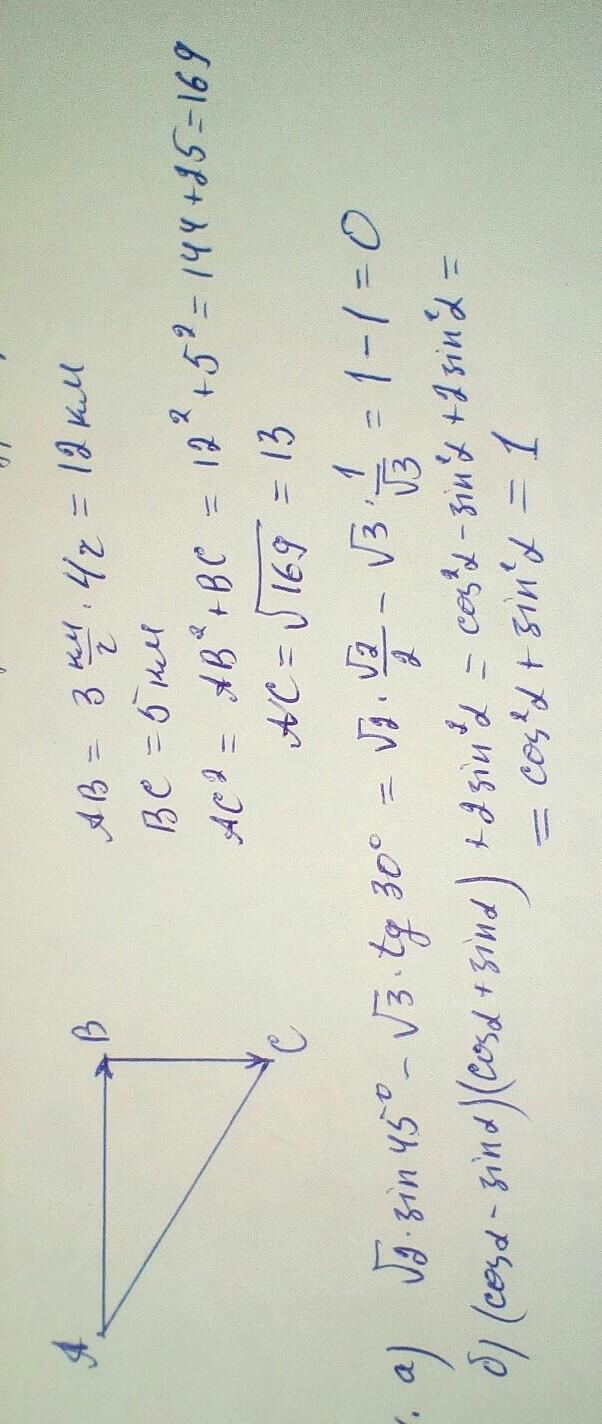 A B C
AB = 3 км/ч · 4ч = 12 км
BC = 5 км
AC² = AB² + BC = 12² + 5² = 144 + 25 = 169
AC = √169 = 13
а) √2 · sin 45° - √3 · tg 30° = √2 · √2/2 - √3 · 1/√3 = 1 - 1 = 0
б) (cosα - sinα)(cosα + sinα) + 2sin²α = cos²α - sin²α + 2sin²α =
= cos²α + sin²α = 1